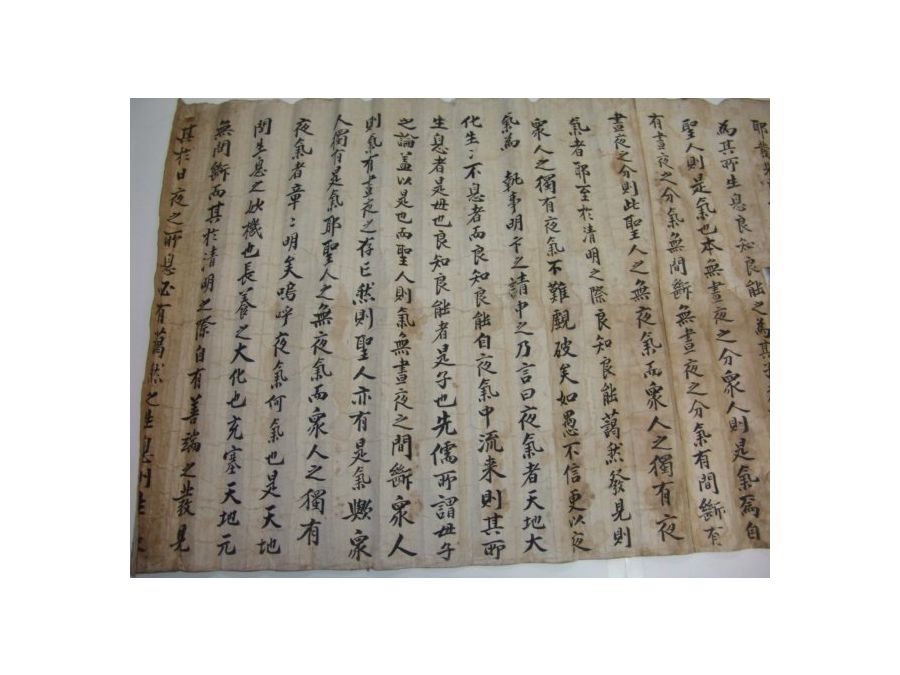 為其所生息良知良能之為其子
聖人則是氣也本無晝夜之分衆人則是氣焉自
有晝夜之分氣無間斷無晝夜之分氣有間斷有
晝夜之分則此聖人之無夜氣而衆人之獨有夜
氣者耶至於清明之際良知良能藹然發見則
衆人之獨有夜氣不難覷破矣如愚不信更以夜
氣為 執事明言之請申之乃言曰夜氣者天地大
化生〻不息者而良知良能自夜氣中流来則其所
生息者是母也良知良能者是子也先儒所謂母子
之論盖以是也而聖人則氣無晝夜之間斷衆人
則氣有晝夜之存亡然則聖人亦有是氣歟衆
人獨有是氣耶聖人之無夜氣而衆人之獨有
夜氣者章〻明矣嗚呼夜氣何氣也是天地
間生息之妙機也長養之大化也充塞天地元
無間斷而其於清明之際自有善端之發見
其於日夜之所息必有藹然之生息